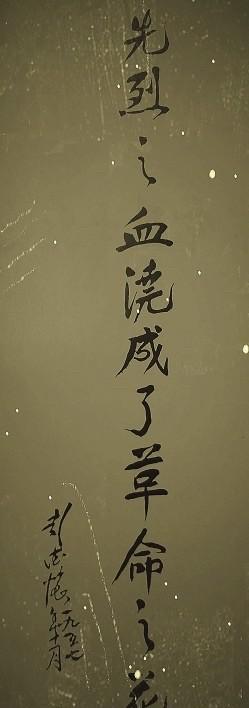 先烈之血浇成了革命之花
彭德怀
一九五七年十月